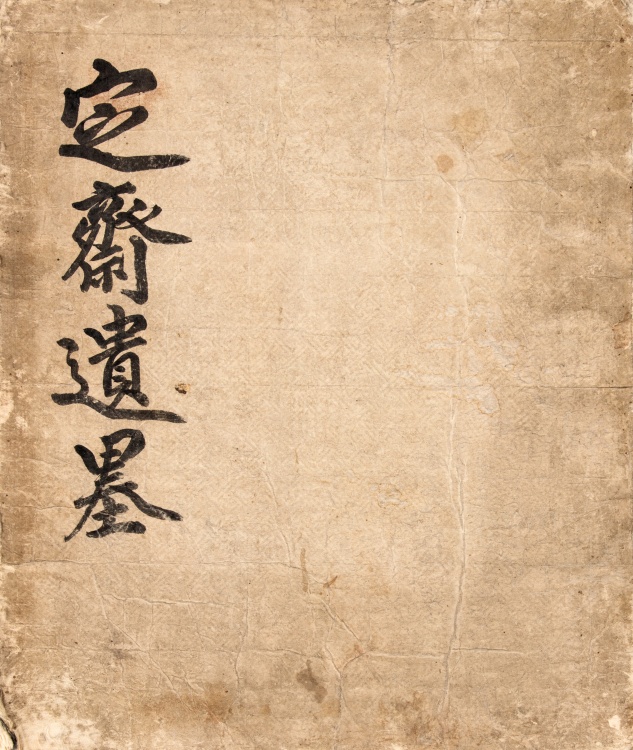 定齋遺墨